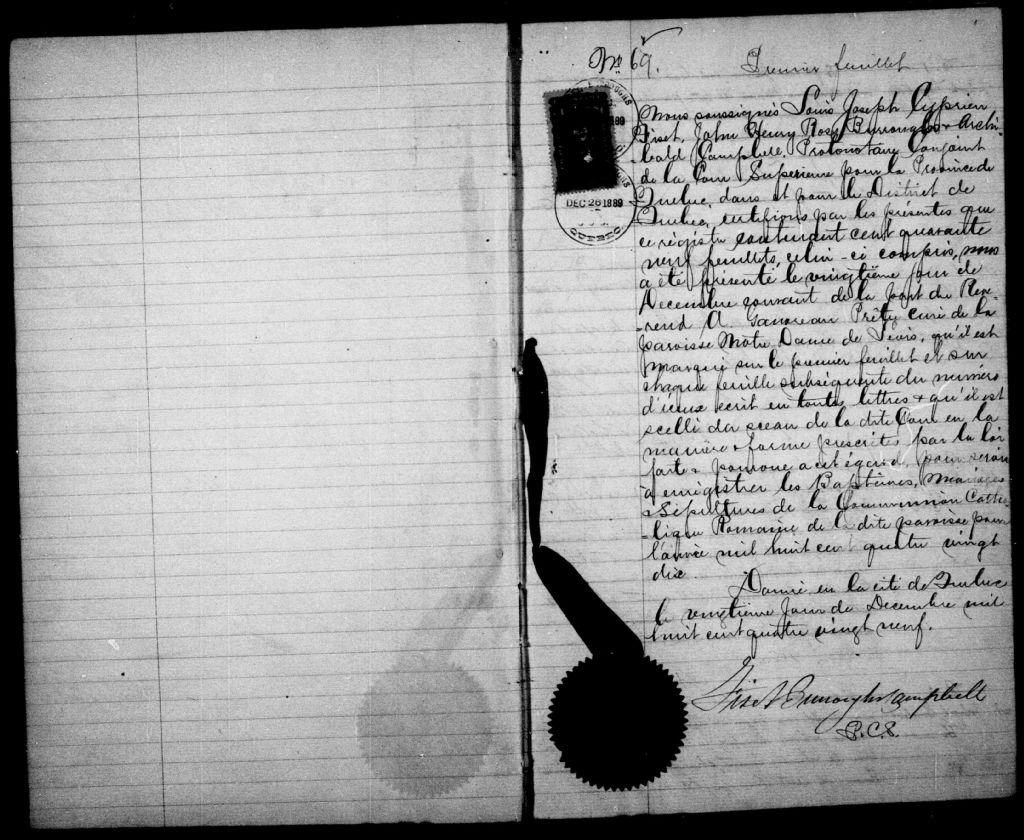 No 69.
Premier feuillet
DEC 26 1889
QUEBEC
Nous soussignés Louis Joseph Cyprien
Fiset, John Henry Ross Burroughs & Archi-
-bald Campbell, Protonotaire Conjoint
de la Cour Superieure pour la Province de
Quebec, dans et pour le District de
Quebec, certifions par les présentes que
ce régistre contenant cent quarante
neuf feuillets, celui-ci compris, nous
a été présenté le vingtième jour de
Decembre courant de la part du Reve-
-rend A. Gauvreau Prêtre curé de la
paroisse Notre Dame de Lévis, qu'il est
marqué sur le premier feuillet et sur
chaque feuille subséquente du numéro
d'iceux ecrit en toute lettres & qu'il est
scellé du sceau de la dite Cour en la
manière & forme prescrites par la loi
faite & pourvue a cet égard, pour servir
à enregistrer les Baptêmes, Mariages
& Sépultures de la Communion Catho-
-lique Romaine de la dite paroisse pour
l'année mil huit cent quatre vingt
dix.
Donné en la cité de Quebec
le vingtième jour de Decembre mil
huit cent quatre vingt neuf.
Fiset Burroughs Campbell
P.C.S.